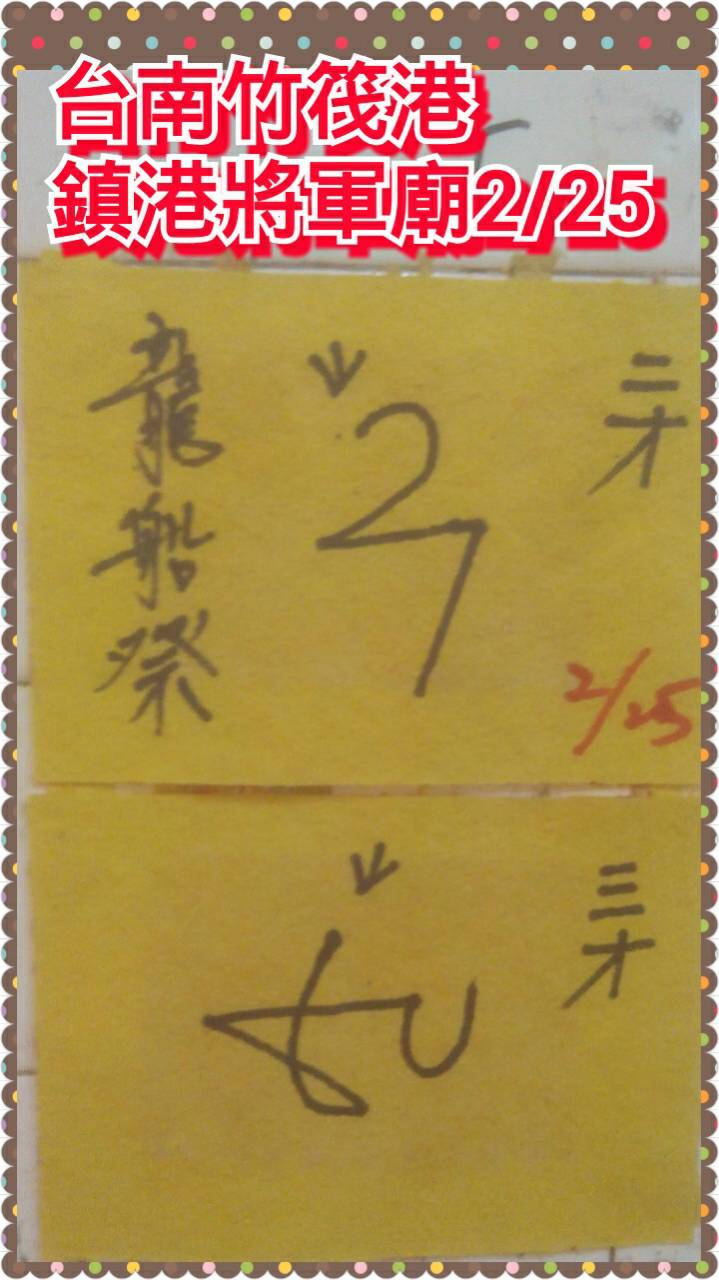 台南竹筏港
鎮港將軍廟2/25
龍船祭
二才
2/25
三才